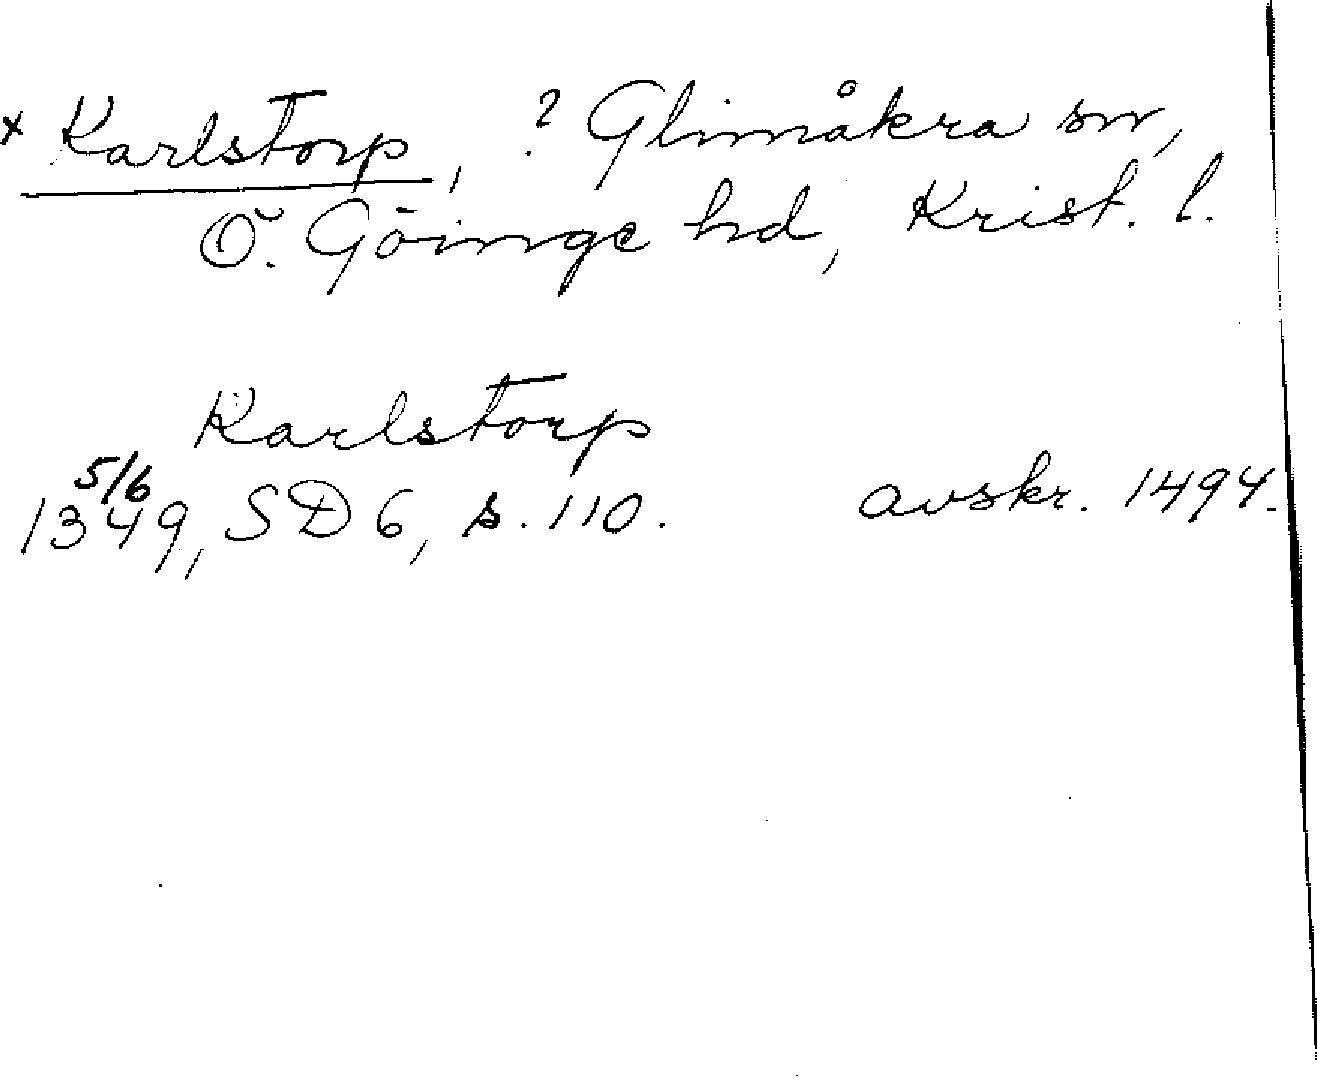 × Karlstorp, ? Glimåkra sn,
Ö. Göinge hd, Krist. l.
Karlstorp
5/6
1349, SD 6, s. 110. avskr. 1494.